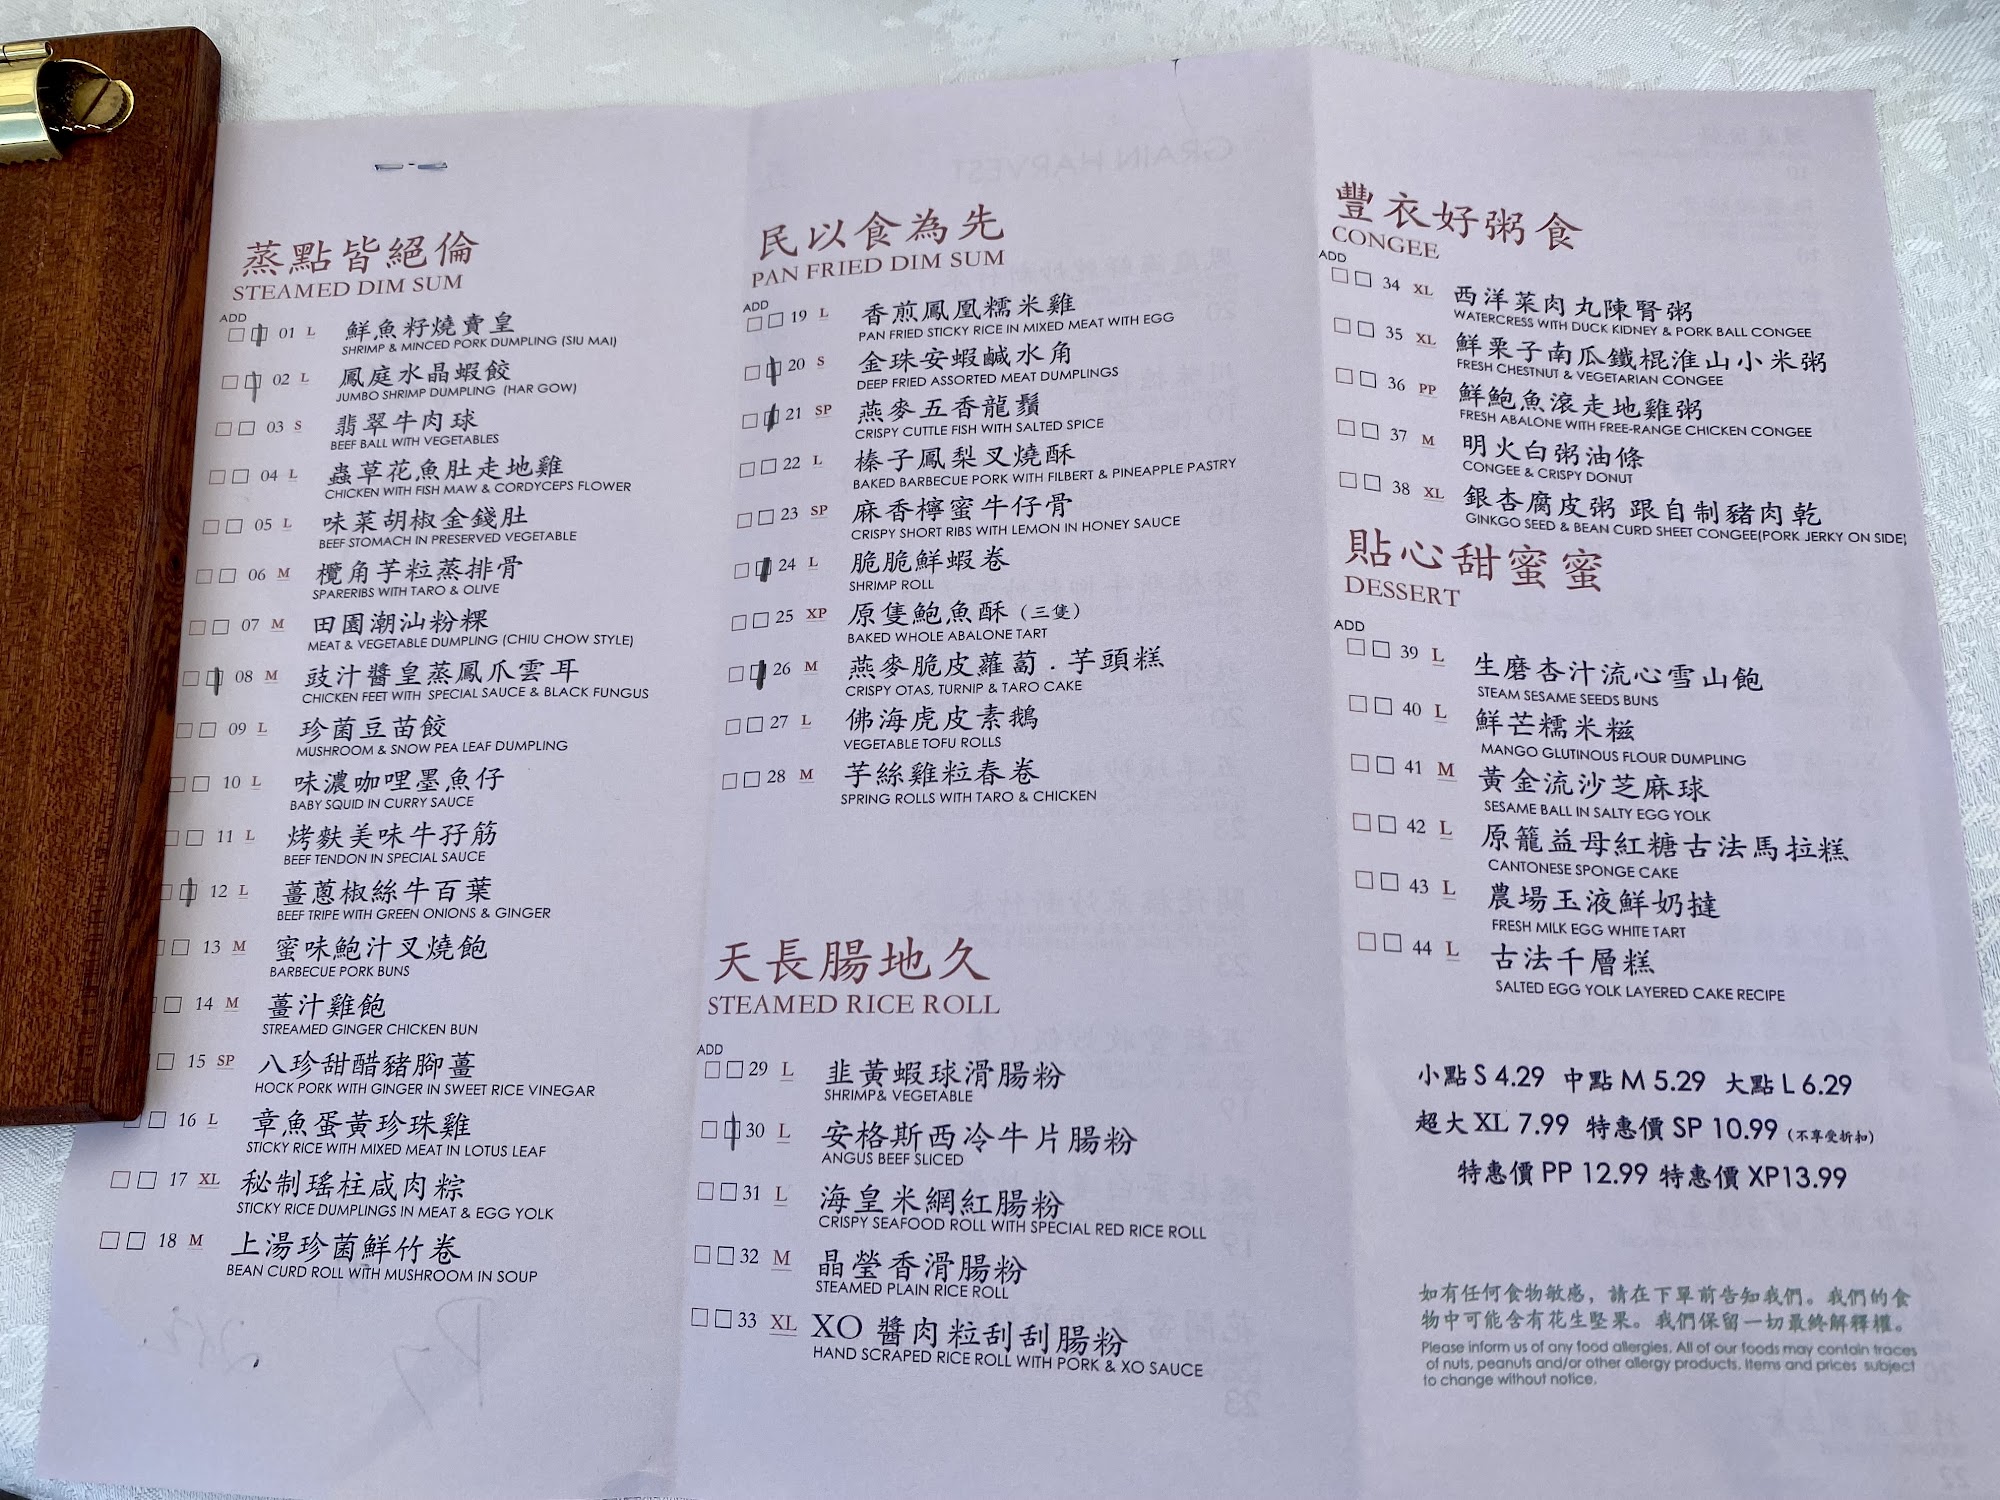 蒸點皆絕倫
STEAMED DIM SUM
ADD
01 L 鮮魚籽燒賣皇
SHRIMP & MINCED PORK DUMPLING (SIU MAI)
02 L 鳳庭水晶蝦餃
JUMBO SHRIMP DUMPLING (HAR GOW)
03 S 翡翠牛肉球
BEEF BALL WITH VEGETABLES
04 L 蟲草花魚肚走地雞
CHICKEN WITH FISH MAW & CORDYCEPS FLOWER
05 L 味菜胡椒金錢肚
BEEF STOMACH IN PRESERVED VEGETABLE
06 M 欖角芋粒蒸排骨
SPARERIBS WITH TARO & OLIVE
07 M 田園潮汕粉粿
MEAT & VEGETABLE DUMPLING (CHIU CHOW STYLE)
08 M 豉汁醬皇蒸鳳爪雲耳
CHICKEN FEET WITH SPECIAL SAUCE & BLACK FUNGUS
09 L 珍菌豆苗餃
MUSHROOM & SNOW PEA LEAF DUMPLING
10 L 味濃咖哩墨魚仔
BABY SQUID IN CURRY SAUCE
11 L 烤麩美味牛孖筋
BEEF TENDON IN SPECIAL SAUCE
12 L 薑蔥椒絲牛百葉
BEEF TRIPE WITH GREEN ONIONS & GINGER
13 M 蜜味鮑汁叉燒飽
BARBECUE PORK BUNS
14 M 薑汁雞飽
STREAMED GINGER CHICKEN BUN
15 SP 八珍甜醋豬腳薑
HOCK PORK WITH GINGER IN SWEET RICE VINEGAR
16 L 章魚蛋黃珍珠雞
STICKY RICE WITH MIXED MEAT IN LOTUS LEAF
17 XL 秘制瑤柱咸肉粽
STICKY RICE DUMPLINGS IN MEAT & EGG YOLK
18 M 上湯珍菌鮮竹卷
BEAN CURD ROLL WITH MUSHROOM IN SOUP
民以食為先
PAN FRIED DIM SUM
ADD
19 L 香煎鳳凰糯米雞
PAN FRIED STICKY RICE IN MIXED MEAT WITH EGG
20 S 金珠安蝦鹹水角
DEEP FRIED ASSORTED MEAT DUMPLINGS
21 SP 燕麥五香龍鬚
CRISPY CUTTLE FISH WITH SALTED SPICE
22 L 榛子鳳梨叉燒酥
BAKED BARBECUE PORK WITH FILBERT & PINEAPPLE PASTRY
23 SP 麻香檸蜜牛仔骨
CRISPY SHORT RIBS WITH LEMON IN HONEY SAUCE
24 L 脆脆鮮蝦卷
SHRIMP ROLL
25 XP 原隻鮑魚酥（三隻）
BAKED WHOLE ABALONE TART
26 M 燕麥脆皮蘿蔔．芋頭糕
CRISPY OTAS, TURNIP & TARO CAKE
27 L 佛海虎皮素鵝
VEGETABLE TOFU ROLLS
28 M 芋絲雞粒春卷
SPRING ROLLS WITH TARO & CHICKEN
天長腸地久
STEAMED RICE ROLL
ADD
29 L 韭黃蝦球滑腸粉
SHRIMP& VEGETABLE
30 L 安格斯西冷牛片腸粉
ANGUS BEEF SLICED
31 L 海皇米網紅腸粉
CRISPY SEAFOOD ROLL WITH SPECIAL RED RICE ROLL
32 M 晶瑩香滑腸粉
STEAMED PLAIN RICE ROLL
33 XL XO 醬肉粒刮刮腸粉
HAND SCRAPED RICE ROLL WITH PORK & XO SAUCE
豐衣好粥食
CONGEE
ADD
34 XL 西洋菜肉丸陳腎粥
WATERCRESS WITH DUCK KIDNEY & PORK BALL CONGEE
35 XL 鮮栗子南瓜鐵棍淮山小米粥
FRESH CHESTNUT & VEGETARIAN CONGEE
36 PP 鮮鮑魚滾走地雞粥
FRESH ABALONE WITH FREE-RANGE CHICKEN CONGEE
37 M 明火白粥油條
CONGEE & CRISPY DONUT
38 XL 銀杏腐皮粥 跟自制豬肉乾
GINKGO SEED & BEAN CURD SHEET CONGEE(PORK JERKY ON SIDE)
貼心甜蜜蜜
DESSERT
ADD
39 L 生磨杏汁流心雪山飽
STEAM SESAME SEEDS BUNS
40 L 鮮芒糯米糍
MANGO GLUTINOUS FLOUR DUMPLING
41 M 黃金流沙芝麻球
SESAME BALL IN SALTY EGG YOLK
42 L 原籠益母紅糖古法馬拉糕
CANTONESE SPONGE CAKE
43 L 農場玉液鮮奶撻
FRESH MILK EGG WHITE TART
44 L 古法千層糕
SALTED EGG YOLK LAYERED CAKE RECIPE
小點 S 4.29 中點 M 5.29 大點 L 6.29
超大 XL 7.99 特惠價 SP 10.99（不享受折扣）
特惠價 PP 12.99 特惠價 XP13.99
如有任何食物敏感，請在下單前告知我們。我們的食
物中可能含有花生堅果。我們保留一切最終解釋權。
Please inform us of any food allergies. All of our foods may contain traces
of nuts, peanuts and/or other allergy products. Items and prices subject
to change without notice.